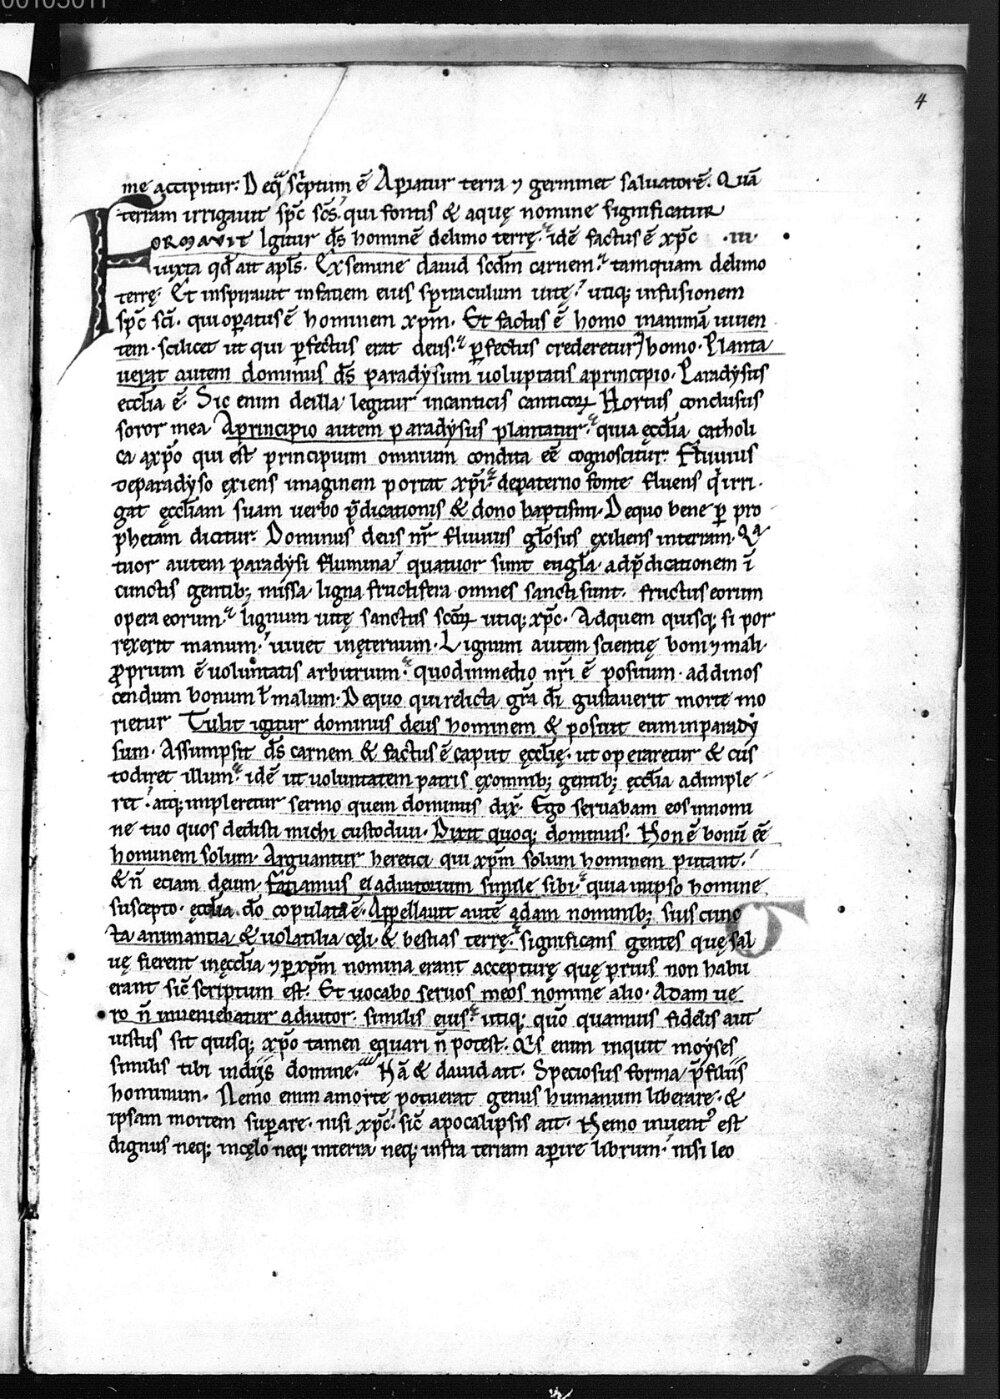 00105011
4
me accipitur. De q̄ sc̄ptum ē Aperiatur terra ⁊ germinet saluatorē. Quā
terram irrigauit sp̄c sc̄s. qui fontis & aquę nomine significatur
FORMAVIT Igitur d̄s hominē delimo terrę. idē factus ē xp̄c .iii.
iuxta qd̄ ait apl̄s. Ex semine dauid scdm̄ carnem. tamquam delimo
terrę. Et inspirauit infaciem eius spiraculum uitę. utiq; infusionem
sp̄c sc̄i. qui oꝑatus ē hominem xp̄m. Et factus ē homo inanimā uiuen
tem. scilicet ut qui ꝑfectus erat deus. ꝑfectus crederetur homo. Planta
uerat autem dominus d̄s paradysum uoluptatis aprincipio. Paradysus
eccl̄ia ē. Sic enim deilla legitur incanticis canticoꝝ Hortus conclusus
soror mea. Aprincipio autem paradysus plantatur. quia ęccl̄ia catholi
ca axp̄o qui est principium omnium condita eē cognoscitur. Fluuius
deparadyso exiens imaginem portat xp̄i. depaterno fonte fluens q̇ irri
gat ęccl̄iam suam uerbo p̄dicationis & dono baptismi. Dequo bene ꝑ pro
phetam dicitur. Dominus deus nr̄ fluuius gl̄osus exiliens interram. Qua
tuor autem paradysi flumina quatuor sunt eugl̄a. adp̄dicationem ī
cunctis gentib; missa. ligna fructifera omnes sancti sunt. fructus eorum
opera eorum. lignum uitę sanctus sc̄oꝝ utiq; xp̄c. Adquem quisq; si por
rexerit manum. uiuet inęternum. Lignum autem scientię boni ⁊ mali
ꝓprium ē uoluntatis arbitrium. quodinmedio nr̄i ē positum. ad dinos
cendum bonum ł malum. Dequo qui relicta gr̄a dī gustauerit morte mo
rietur Tulit igitur dominus deus hominem & posuit eum inparady
sum. Assumpsit d̄s carnem & factus ē caput ęccl̄ię. ut operaretur & cus
todiret illum. idē ut uoluntatem patris exomnib; gentib; ęccl̄ia adimple
ret. atq; impleretur sermo quem dominus dix̄. Ego seruabam eos innomi
ne tuo quos dedisti michi custodiui. Dixit quoq; dominus. Non ē bonū eē
hominem solum. Arguantur heretici qui xp̄m solum hominem putant.
& n̄ etiam deum. Faciamus ei adiutorium simile sibi. quia inipso homine
suscepto. ęccl̄ia dō copulata ē. Appellauit autē adam nominib; suis cunc
ta animantia & uolatilia cęli. & bestias terrę. significans gentes quę sal
uę fierent inęccl̄ia ⁊ ꝑ xp̄m nomina erant accepturę quę prius non habu
erant sic̄ scriptum est. Et uocabo seruos meos nomine alio. Adam ue
ro n̄ inueniebatur adiutor similis eius. utiq; quō quamuis fidelis aut
iustus sit quisq; xp̄o tamen equari n̄ potest. Q̇s enim inquit moyses
similis tibi indiis domine. Nā & dauid ait. Speciosus forma p̄ filiis
hominum. Nemo enim amorte potuerat genus humanum liberare. &
ipsam mortem suꝑare. nisi xp̄c. sic̄ apocalipsis ait. Nemo inuent⁹ est
dignus neq; incęlo neq; interra neq; infra terram aꝑire librum. nisi leo